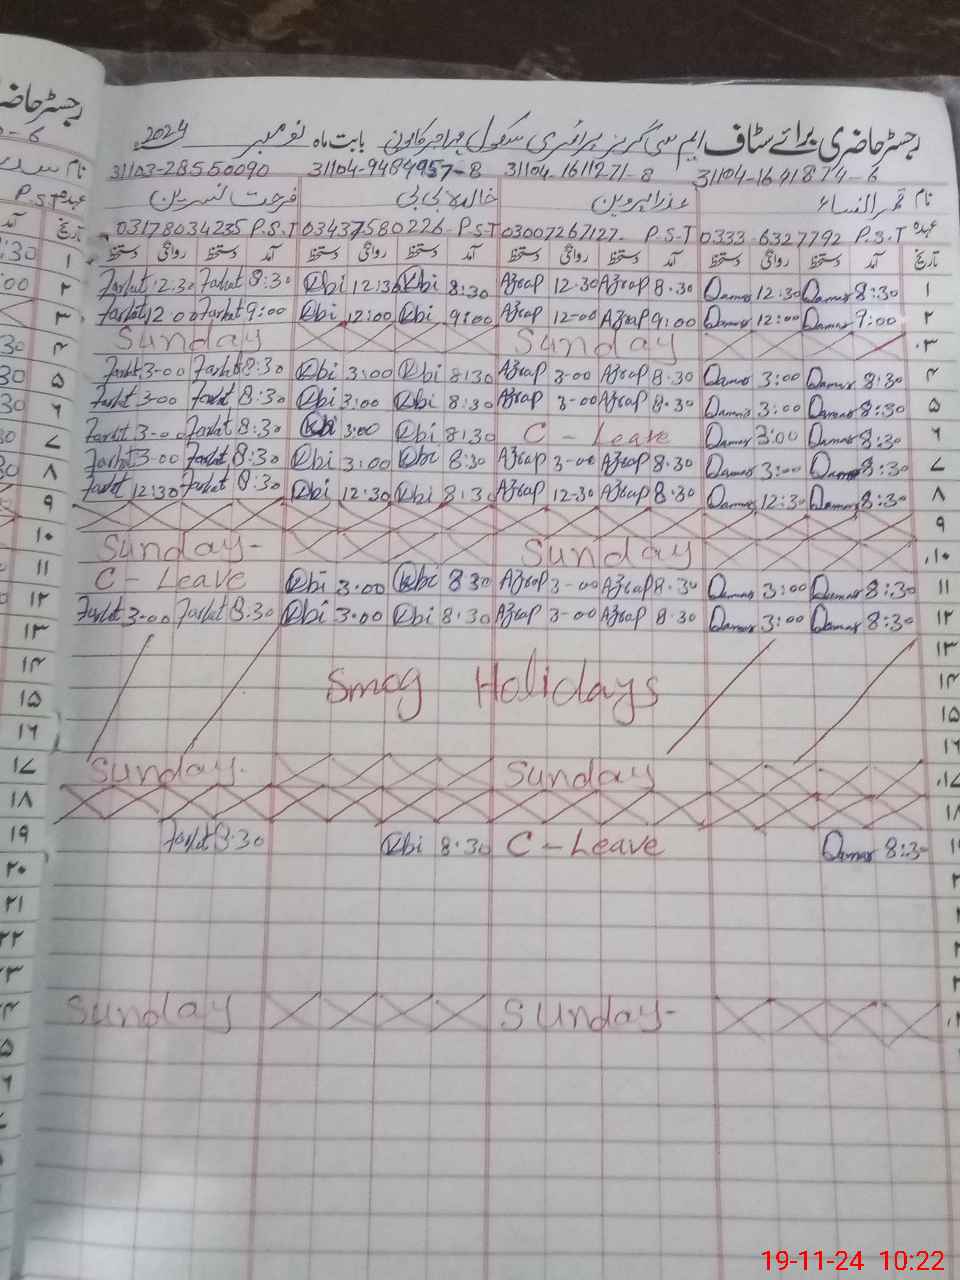 رجسٹر حاضری برائے سٹاف ایم سی گرلز پرائمری سکول مہاجر کالونی بابت ماہ نومبر 2024
31104-1641874-6 31104-1611271-8 31104-9484957-8 31103-28550090
نام قمر النساء عذرا پروین خالدہ بی بی فرحت نسرین
عہدہ P.S.T 0333-6327792 P.S.T 03007267127 P.S.T 03437580226 P.S.T 03178034235
تاریخ آمد دستخط روانگی دستخط آمد دستخط روانگی دستخط آمد دستخط روانگی دستخط آمد دستخط روانگی دستخط
Farhat 12.30 Farhat 8:30 Rbi 12:30 Rbi 8:30 12.30 8.30 Qamar 12:30 Qamar 8:30 ۱
Farhat 12 00 Farhat 9:00 Rbi 12:00 Rbi 9:00 12-00 9:00 Qamar 12:00 Qamar 9:00 ۲
Sunday Sunday ۳
Farhat 3-00 Farhat 8:30 Rbi 3:00 Rbi 8:30 3-00 8.30 Qamar 3:00 Qamar 8:30 ۴
Farhat 3-00 Farhat 8:30 Rbi 3:00 Rbi 8:30 3-00 8.30 Qamar 3:00 Qamar 8:30 ۵
Farhat 3-00 Farhat 8:30 Rbi 3:00 Rbi 8:30 C - Leave Qamar 3:00 Qamar 8:30 ۶
Farhat 3-00 Farhat 8:30 Rbi 3:00 Rbi 8:30 3-00 8.30 Qamar 3:00 Qamar 8:30 ۷
Farhat 12:30 Farhat 8:30 Rbi 12:30 Rbi 8:30 12-30 8.30 Qamar 12:30 Qamar 8:30 ۸
۹
Sunday- Sunday ۱۰
C - Leave Rbi 3.00 Rbi 8 30 3-00 8.30 Qamar 3:00 Qamar 8:30 ۱۱
Farhat 3.00 Farhat 8.30 Rbi 3.00 Rbi 8.30 3-00 8.30 Qamar 3:00 Qamar 8:30 ۱۲
۱۳
Smog Holidays ۱۴
۱۵
۱۶
Sunday. Sunday ۱۷
۱۸
Farhat 8.30 Rbi 8.30 C - Leave Qamar 8:30 ۱۹
۲۰
۲۱
۲۲
۲۳
Sunday Sunday- ۲۴
19-11-24 10:22